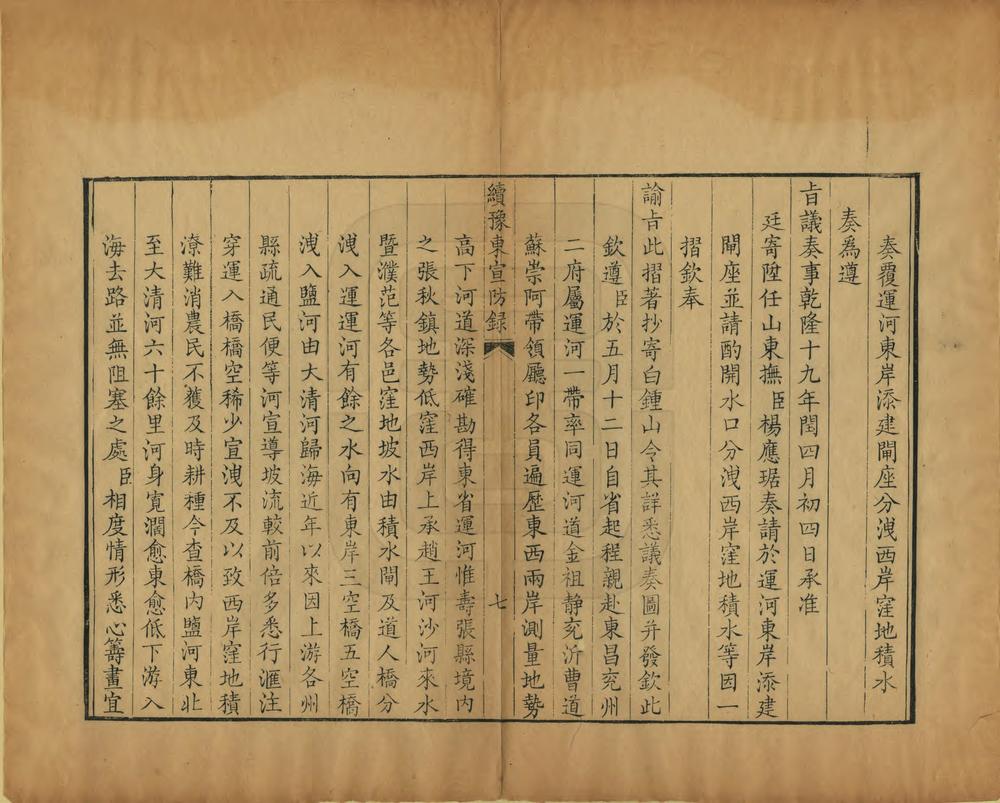 奏覆運河東岸添建閘座分洩西岸窪地積水
奏為遵
旨議奏事乾隆十九年閏四月初四日承准
廷寄陞任山東撫臣楊應琚奏請於運河東岸添建
閘座並請酌開水口分洩西岸窪地積水等因一
摺欽奉
諭旨此摺著抄寄白鍾山令其詳悉議奏圖并發欽此
欽遵臣於五月十二日自省起程親赴東昌兖州
二府屬運河一帶率同運河道金祖静兖沂曹道
蘇崇阿帶領廳印各員遍歷東西兩岸測量地勢
續豫東宣防録
七
高下河道深淺確勘得東省運河惟壽張縣境内
之張秋鎮地勢低窪西岸上承趙王河沙河來水
暨濮范等各邑窪地坡水由積水閘及道人橋分
洩入運運河有餘之水向有東岸三空橋五空橋
洩入鹽河由大清河歸海近年以來因上游各州
縣疏通民便等河宣導坡流較前倍多悉行滙注
穿運入橋橋空稀少宣洩不及以致西岸窪地積
潦難消農民不獲及時耕種今查橋内鹽河東北
至大清河六十餘里河身寛濶愈東愈低下游入
海去路並無阻塞之處臣相度情形悉心籌畫宜